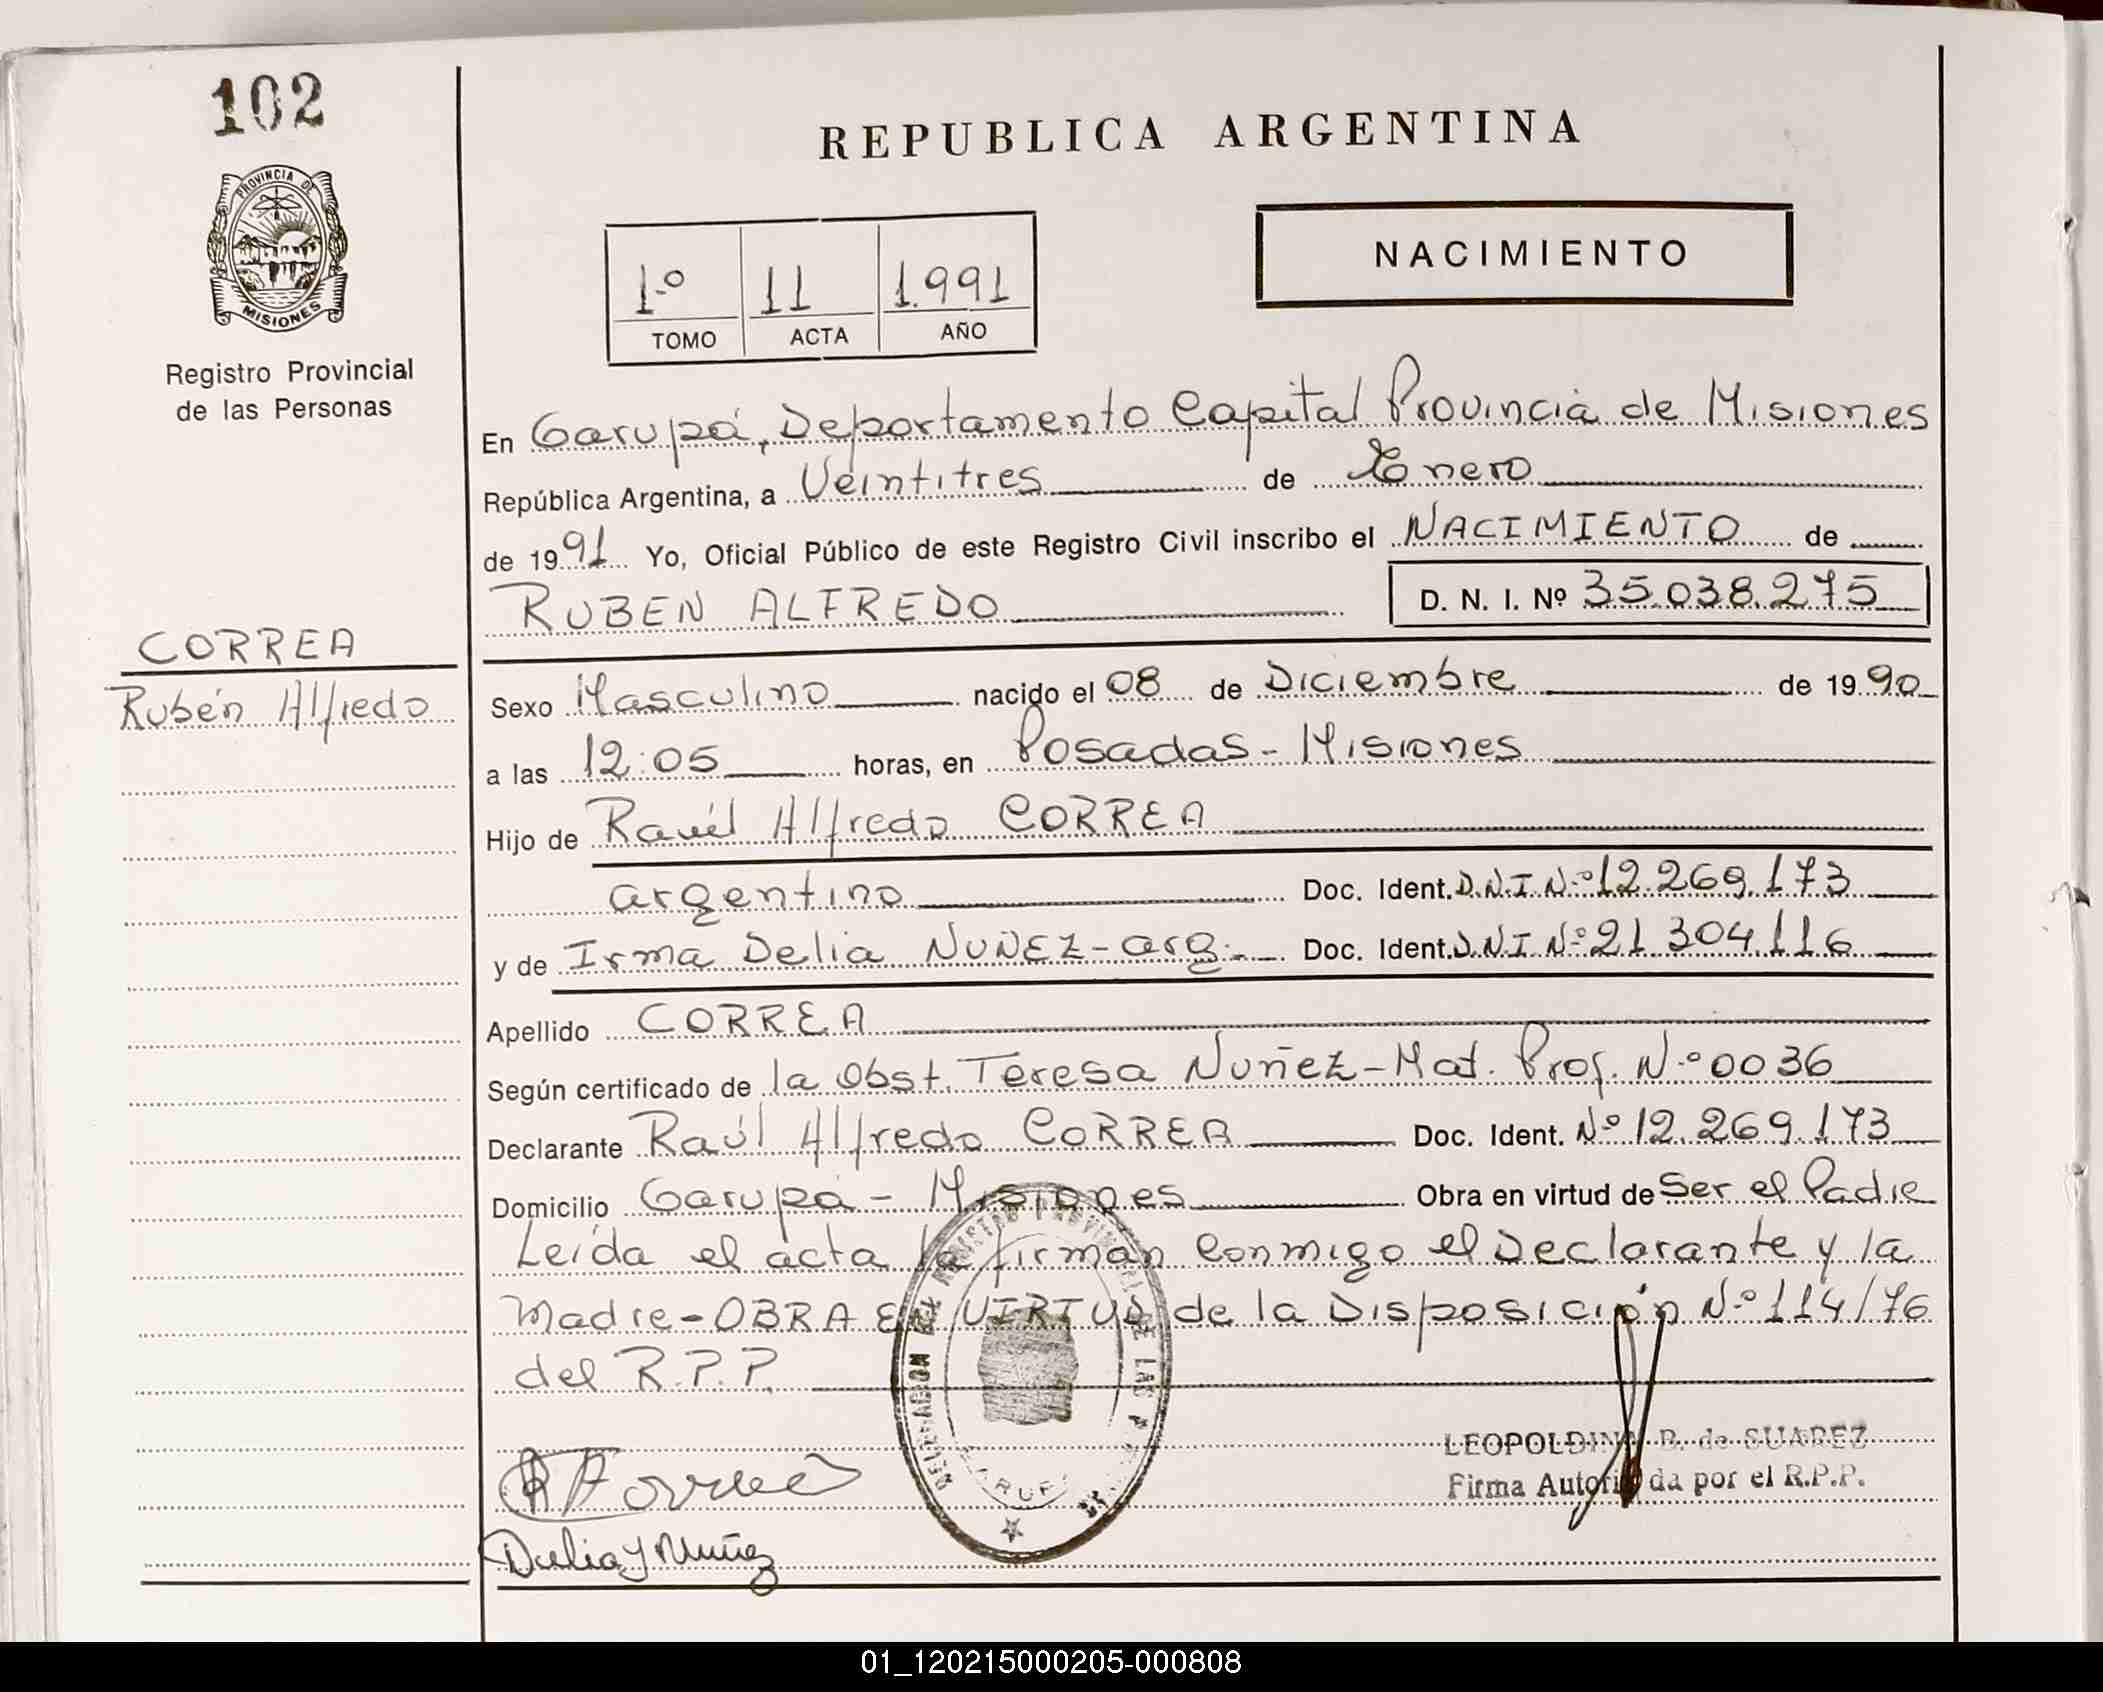 102
PROVINCIA DE
MISIONES
Registro Provincial
de las Personas
CORREA
Rubén Alfredo
REPUBLICA ARGENTINA
1º 11 1.991
TOMO ACTA AÑO
NACIMIENTO
En Garupá, Departamento Capital Provincia de Misiones
República Argentina, a Veintitres de Enero
de 1991 Yo, Oficial Público de este Registro Civil inscribo el NACIMIENTO de
RUBEN ALFREDO D. N. I. Nº 35.038.275
Sexo Masculino nacido el 08 de Diciembre de 1990
a las 12:05 horas, en Posadas - Misiones
Hijo de Raúl Alfredo CORREA
argentino Doc. Ident. D.N.I. Nº 12.269.173
y de Irma Delia NUÑEZ - arg. Doc. Ident. D.N.I. Nº 21.304.116
Apellido CORREA
Según certificado de la Obst. Teresa Nuñez - Mat. Prof. Nº 0036
Declarante Raúl Alfredo CORREA Doc. Ident. Nº 12.269.173
Domicilio Garupá - Misiones Obra en virtud de Ser el Padre
Leída el acta la firman Conmigo el Declarante y la
Madre - OBRA EN VIRTUD de la Disposición Nº 114/76
del R.P.P.
LEOPOLDINA B. de SUAREZ
Firma Autorizada por el R.P.P.
Delia Y Nuñez
01_120215000205-000808